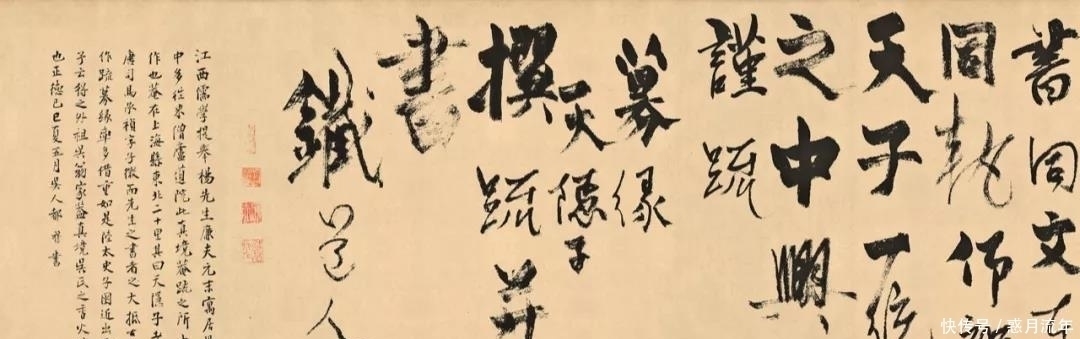 書同文車
同軌
天子
之中興
謹疏
募緣
天隱子
撰疏并
書
鐵道人
江西儒學提舉楊先生廉夫元末寓居
中多從來僧廬道院此真境菴疏之所
作也菴在上海縣東北二十里其曰天隱子
唐司馬承禎字子微而先生之書者之大抵
作疏募緣率多借重如是陸太史子困近出
子云得之外祖吳翁家蓋真境吳氏之香火
也正德己巳夏五月吳人都穆書
快传号 / 惑月流年